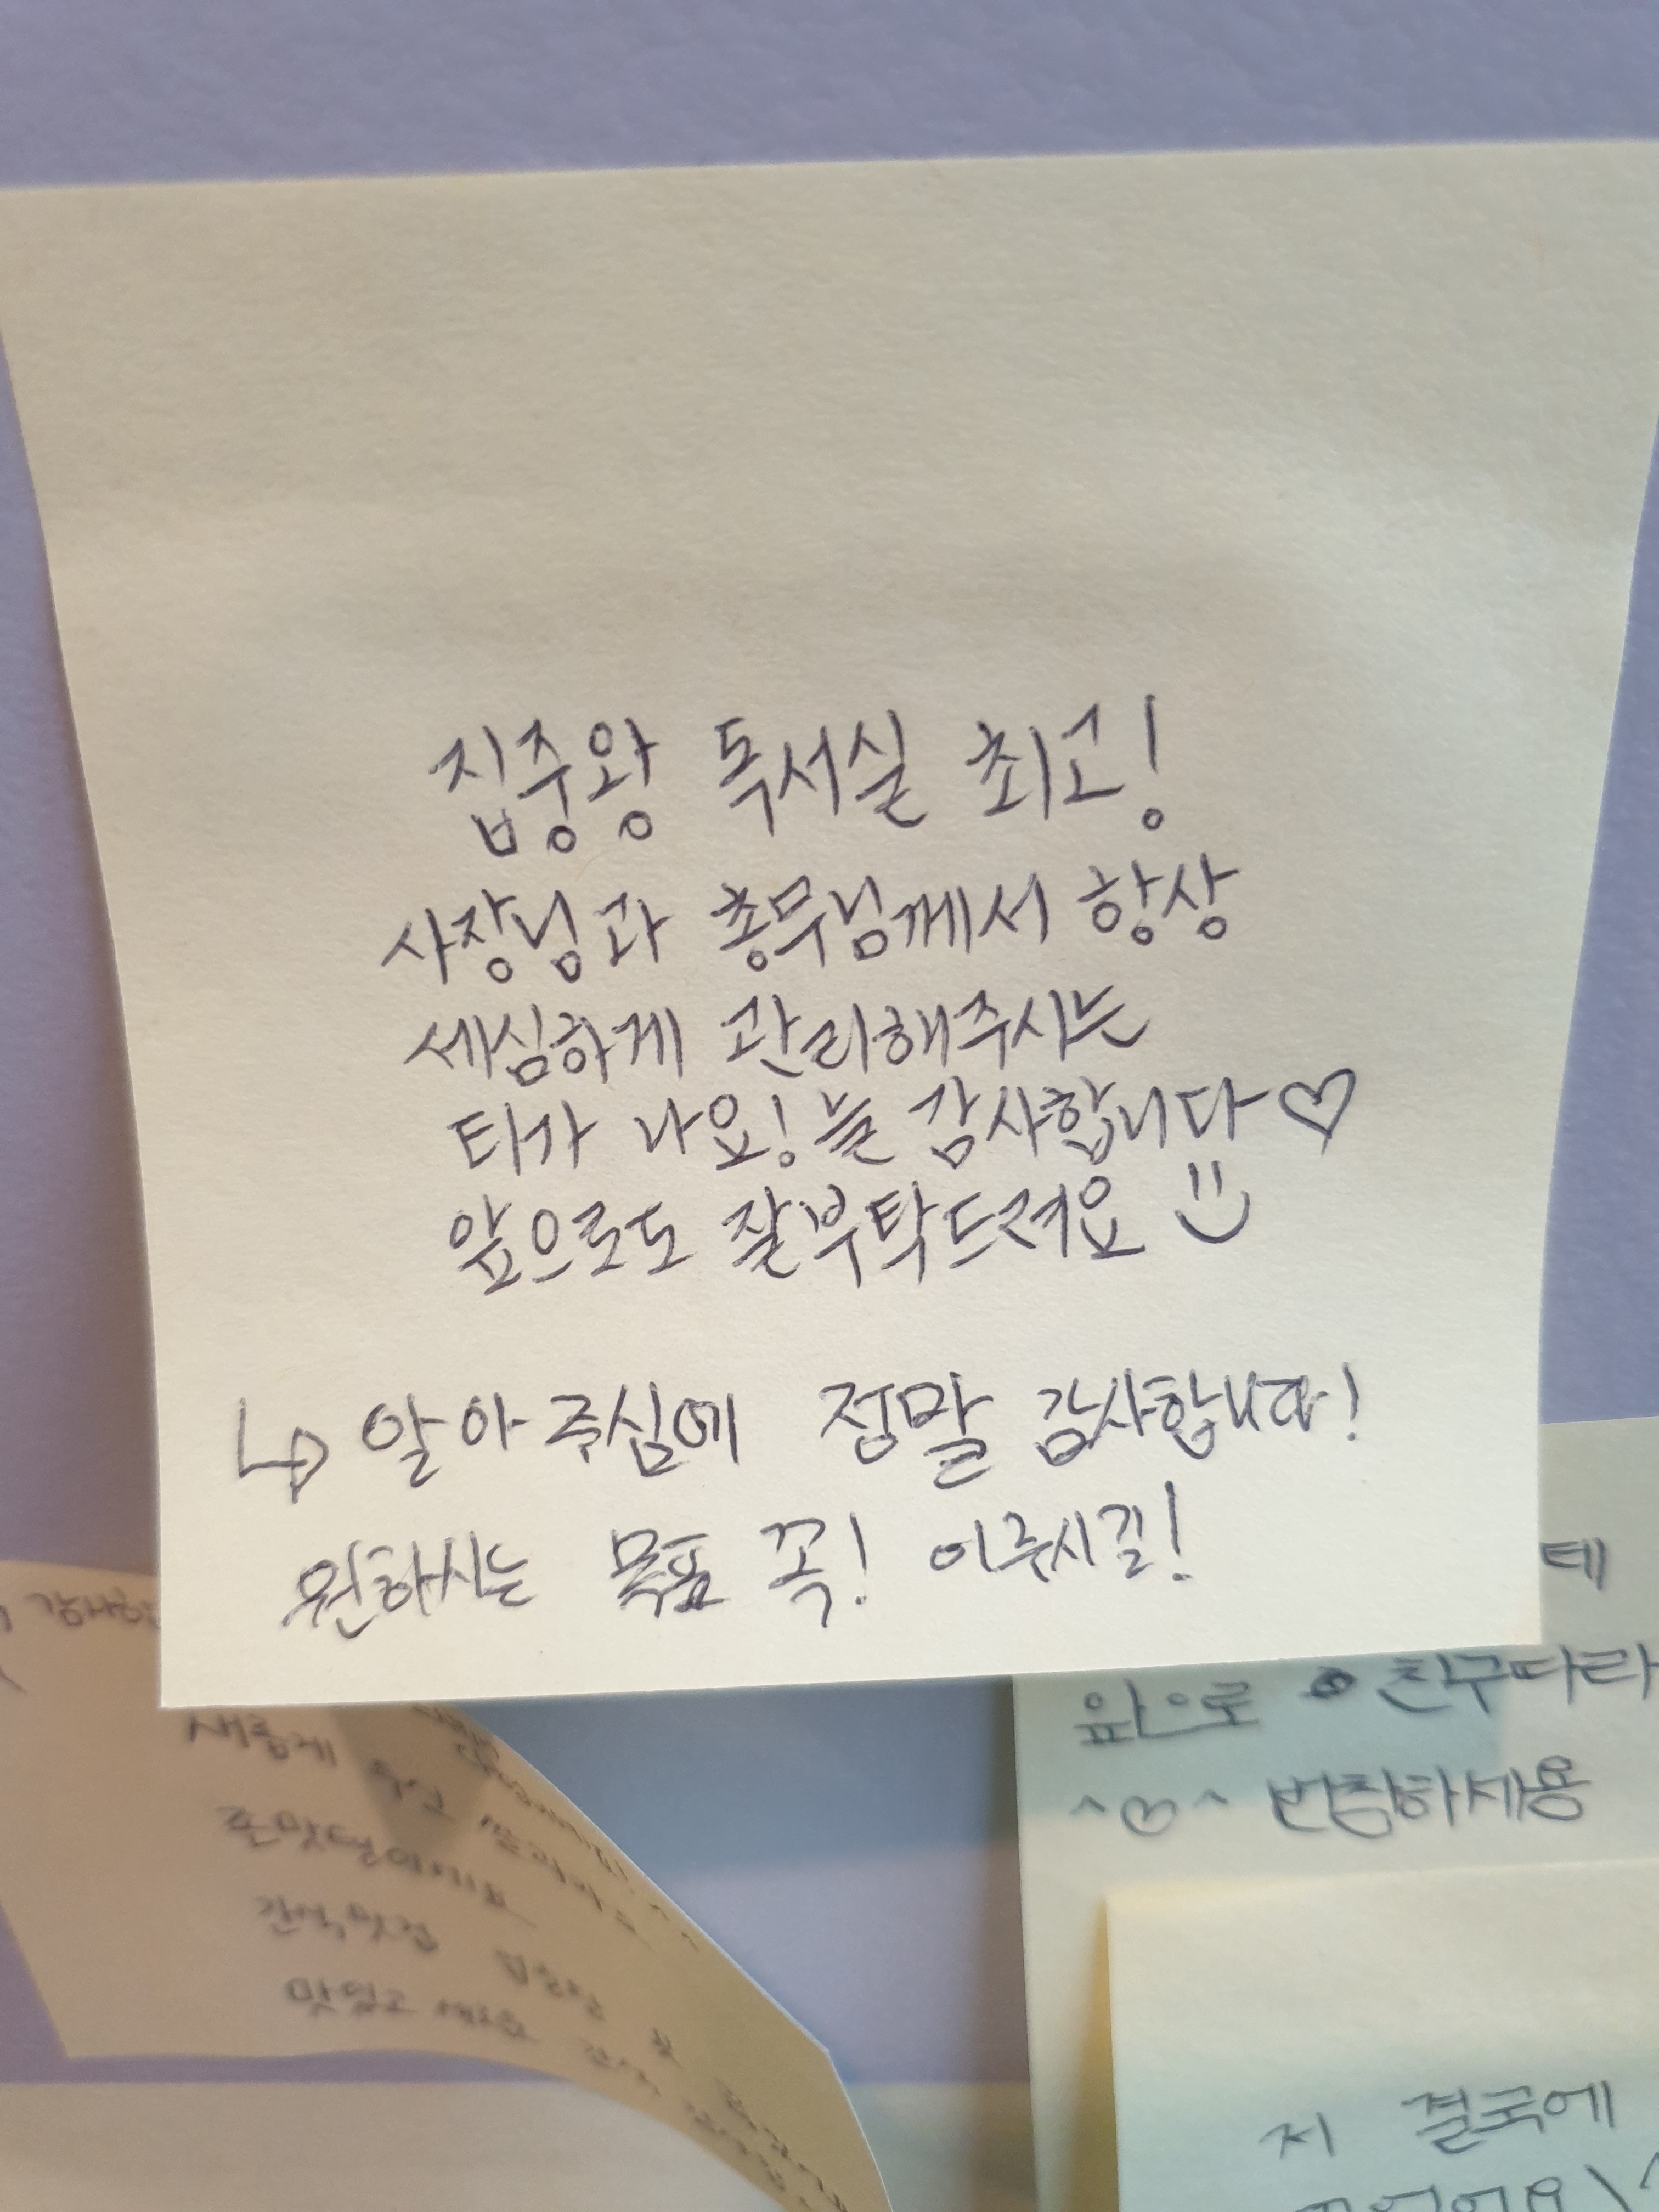 집중왕 독서실 최고!
사장님과 총무님께서 항상
세심하게 관리해주시는
티가 나요! 늘 감사합니다♡
앞으로도 잘부탁드려요 :)
↳ 알아주심에 정말 감사합니다!
원하시는 목표 꼭! 이루시길!
테
앞으로 친구따라
^♡^ 번창하세용
새롭게
존맛탱이에요
간식맛집
맛있고 새로운 간식
저 결국에